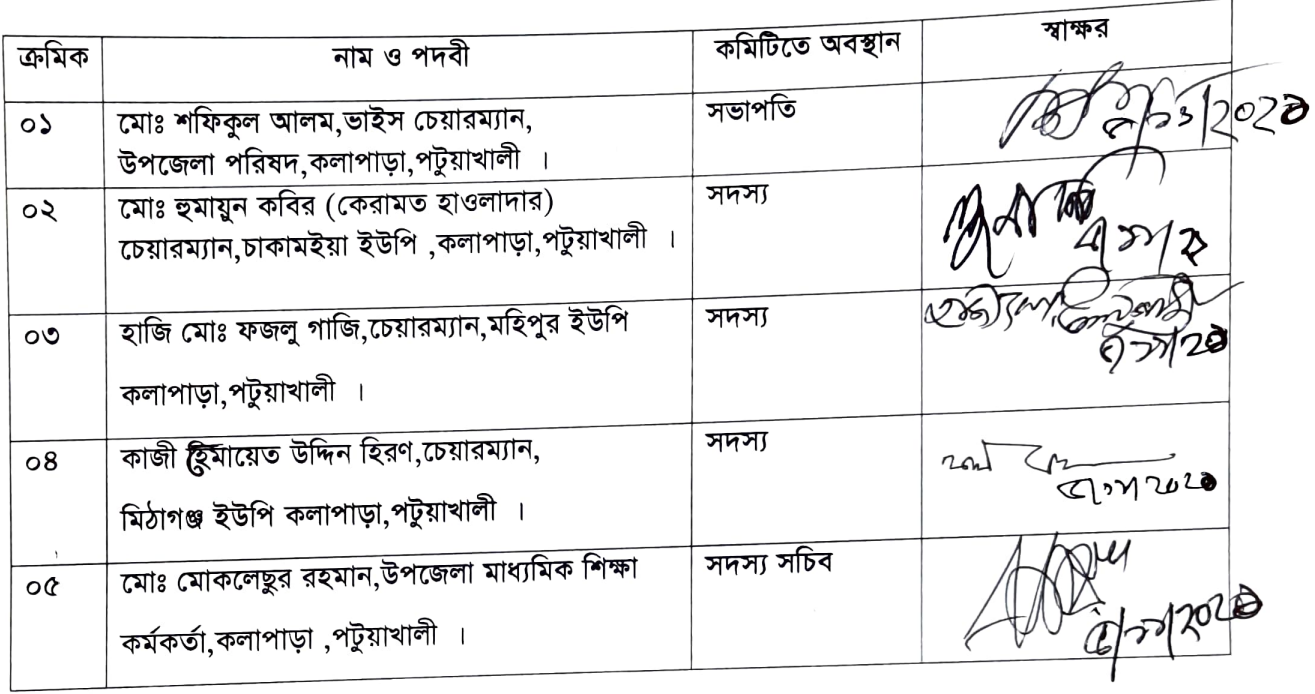 ক্রমিক নাম ও পদবী কমিটিতে অবস্থান স্বাক্ষর
০১ মোঃ শফিকুল আলম,ভাইস চেয়ারম্যান, সভাপতি
উপজেলা পরিষদ,কলাপাড়া,পটুয়াখালী ।
০২ মোঃ হুমায়ুন কবির (কেরামত হাওলাদার) সদস্য
চেয়ারম্যান,চাকামইয়া ইউপি ,কলাপাড়া,পটুয়াখালী ।
০৩ হাজি মোঃ ফজলু গাজি,চেয়ারম্যান,মহিপুর ইউপি সদস্য
কলাপাড়া,পটুয়াখালী ।
০৪ কাজী হেমায়েত উদ্দিন হিরণ,চেয়ারম্যান, সদস্য
মিঠাগঞ্জ ইউপি কলাপাড়া,পটুয়াখালী ।
০৫ মোঃ মোকলেছুর রহমান,উপজেলা মাধ্যমিক শিক্ষা সদস্য সচিব
কর্মকর্তা,কলাপাড়া ,পটুয়াখালী ।